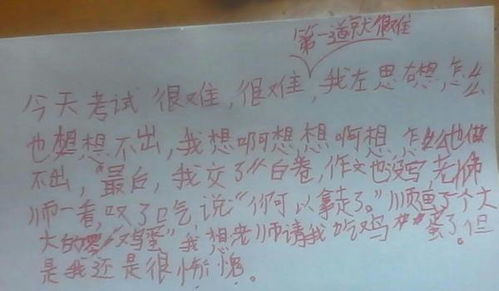 第一道就很难
今天考试很难,很难,我左思右想,怎么
也想想不出,我想啊想,想啊想,怎么也做
不出,最后,我交了白卷,作文也没写老师
师一看,叹了口气说“你可以拿走了。”顺画了个大
大的“鸡蛋”我想老师请我吃鸡蛋了.但
是我还是很惭愧。